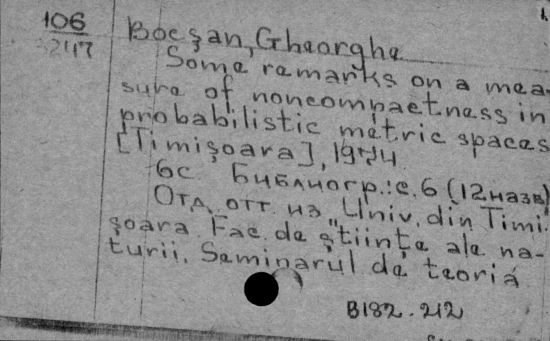 106
3247
Bocşan, Gheorghe
Some remarks on a mea-
sure of noncompactness in
probabilistic metric spaces
[Timişoara], 1974.
6с Библиогр.: с. 6 (12 назв)
Отд. отт. из „Univ. din Timi-
şoara. Fac. de ştiinţe ale na-
turii. Seminarul de teoria
B182.212